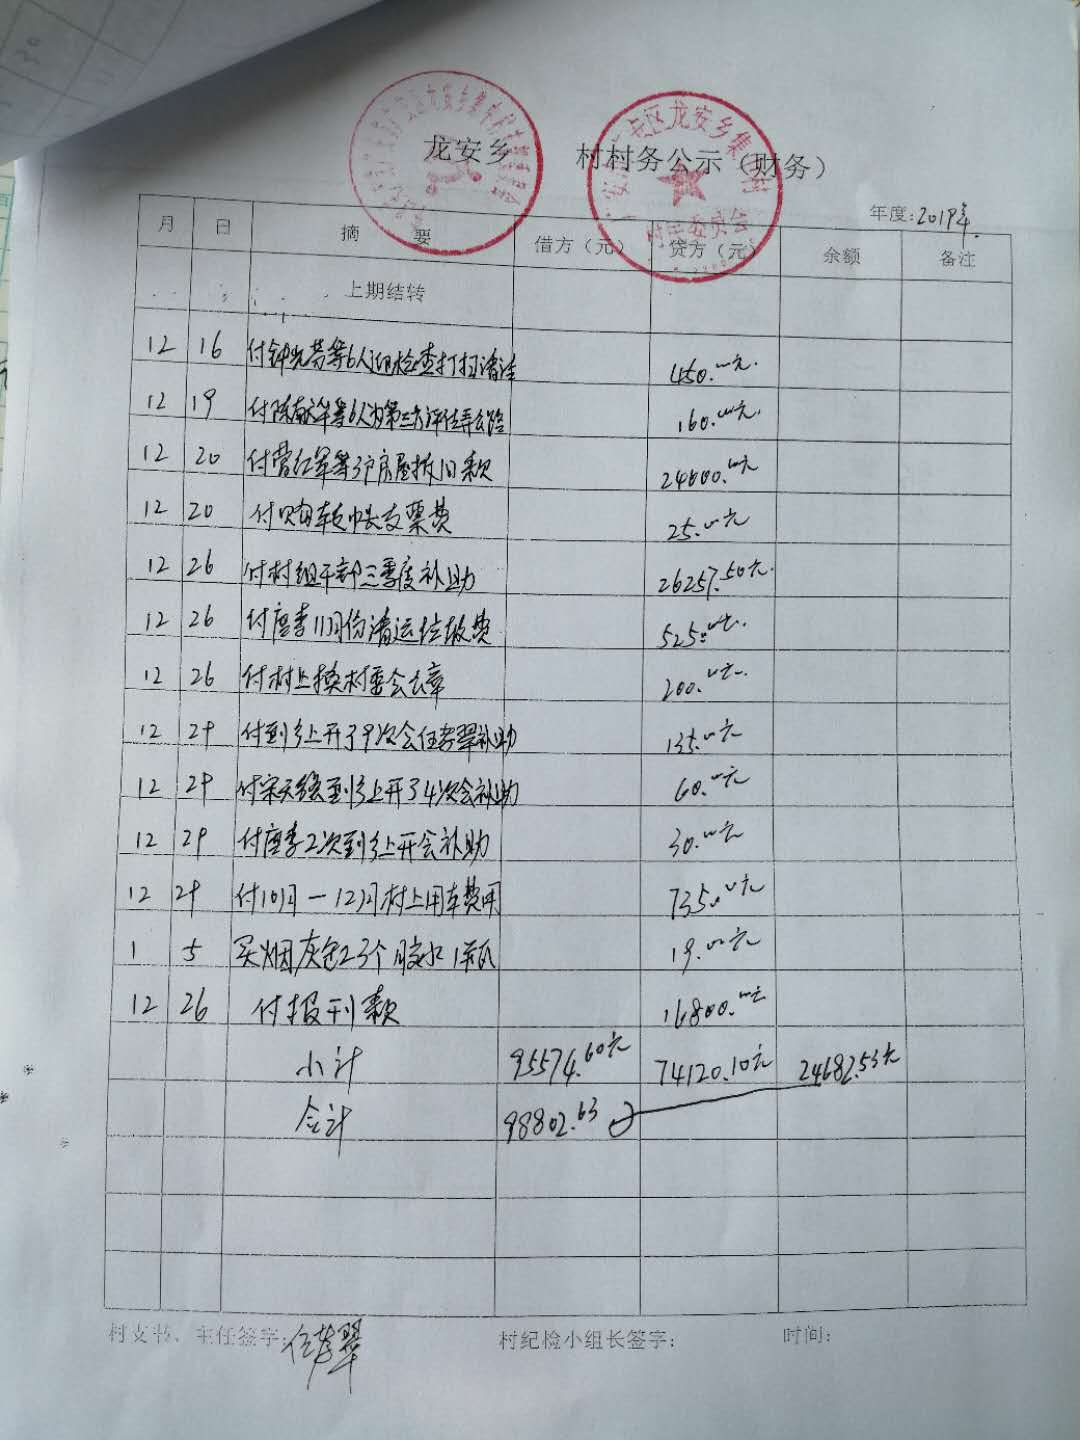 龙安乡 村村务公示（财务）
年度:2019年
月 日 摘 要 借方（元） 贷方（元） 余额 备注
上期结转
12 16 付钟光芬等6人迎检查打扫清洁 450.00元
12 19 等6人为第三方评估弄公路 160.00元
12 20 付 红军等3户房屋拆旧款 24000.00元
12 20 付购转帐支票费 25.00元
12 26 付村组干部三季度补助 26257.50元
12 26 付唐李11月份清运垃圾费 525.00元
12 26 付村上换村委会公章 200.00元
12 29 付到乡上开了9次会任孝翠补助 135.00元
12 29 付宋天 到乡上开了4次会补助 60.00元
12 29 付唐李2次到乡上开会补助 30.00元
12 29 付10月—12月村上用车费用 735.00元
1 5 买烟灰缸3个胶水1瓶 19.00元
12 26 付报刊款 16800.00元
小计 95574.60元 74120.10元 24682.53元
合计 98802.63
村支书、主任签字:任孝翠 村纪检小组长签字: 时间: